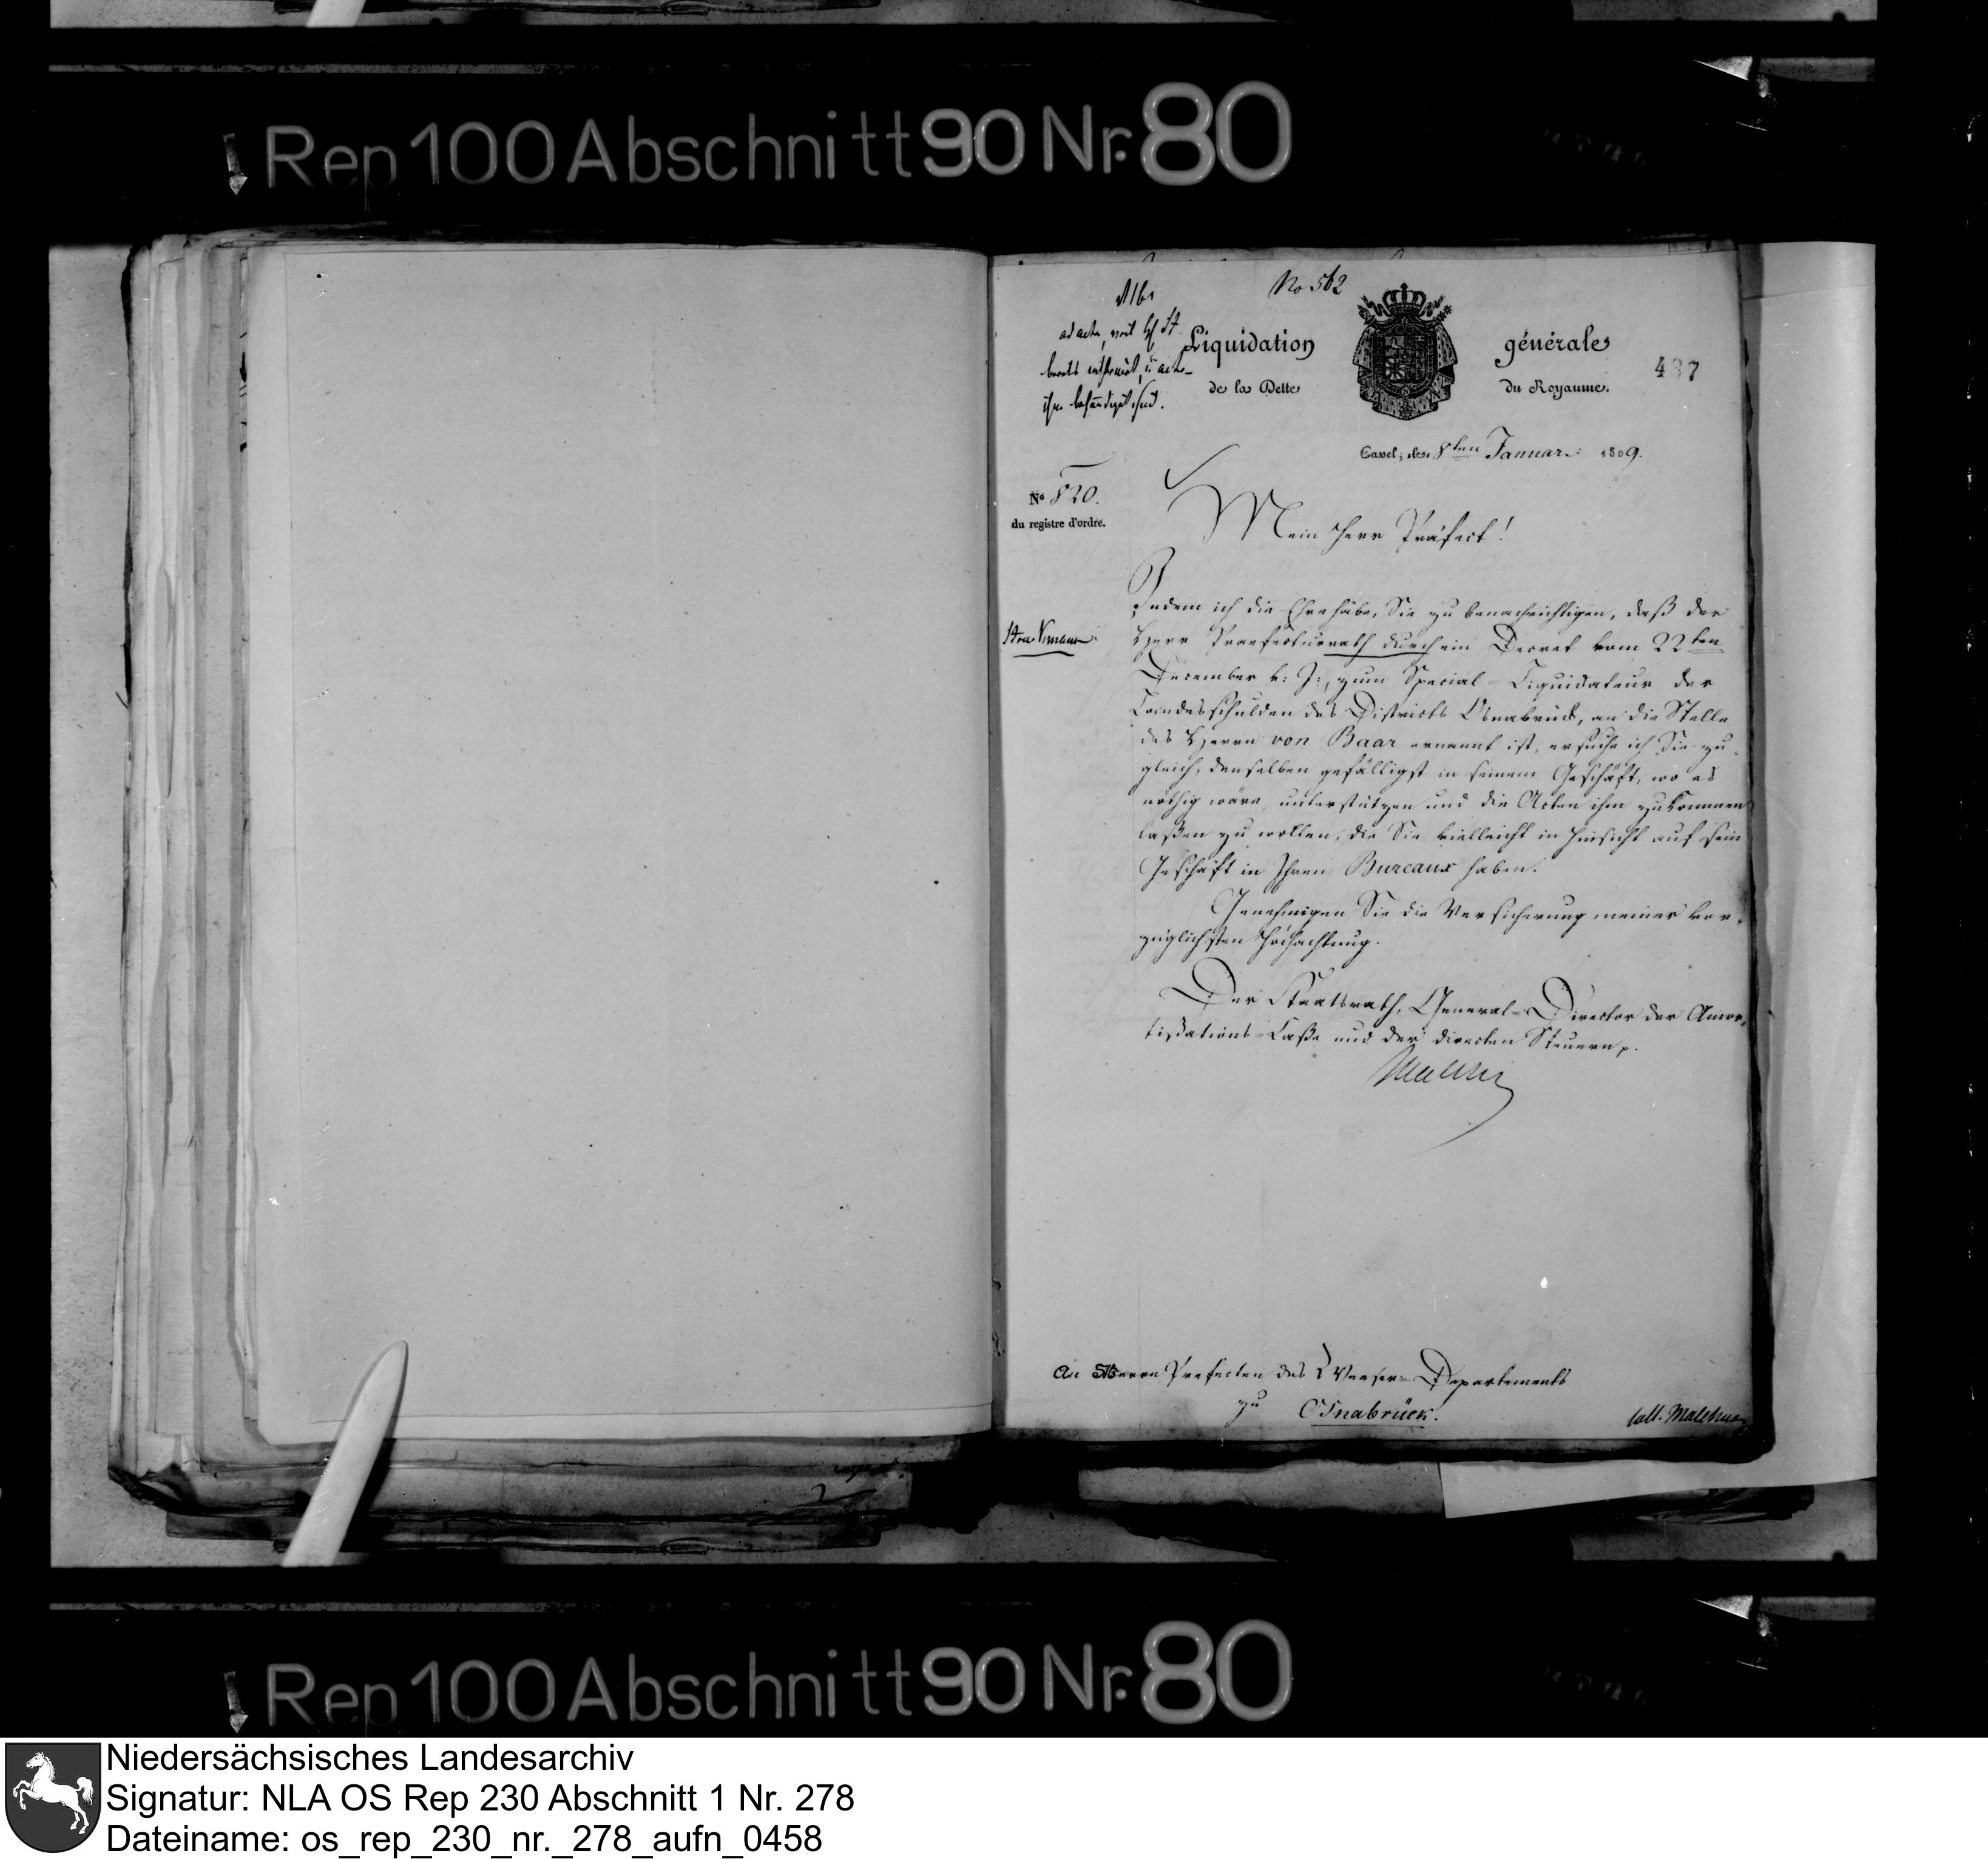 Rep 100 Abschnitt 90 Nr. 80
No 562
ad acta, weil
bereits
ihm behändiget sind.
Liquidation générale
de la Dette du Royaume.
437
Cassel, le 8ten Januar 1809.
No 820.
du registre d'ordre.
Mein Herr Präfect!
Indem ich die Ehre habe, Sie zu benachrichtigen, daß der
Herr Praefecturrath durch ein Decret vom 22ten
December v: J:, zum Special-Liquidateur der
Landesschulden des Districts Osnabrück, an die Stelle
des Herrn von Baar ernannt ist, ersuche ich Sie zu-
gleich, denselben gefälligst in seinem Geschäft, wo es
nöthig wäre, unterstützen und die Acten ihm zukommen
laßen zu wollen, die Sie vielleicht in Hinsicht auf sein
Geschäft in Ihren Bureaux haben.
Genehmigen Sie die Versicherung meiner vor-
züglichsten Hochachtung.
Der Staatsrath, General-Director der Amor-
tisations-Caße und der directen Steuern p.
Malchus
An Herrn Prefecten des Weser-Departements
zu Osnabrück.
Coll. Malchus
Rep 100 Abschnitt 90 Nr. 80
Niedersächsisches Landesarchiv
Signatur: NLA OS Rep 230 Abschnitt 1 Nr. 278
Dateiname: os_rep_230_nr._278_aufn_0458